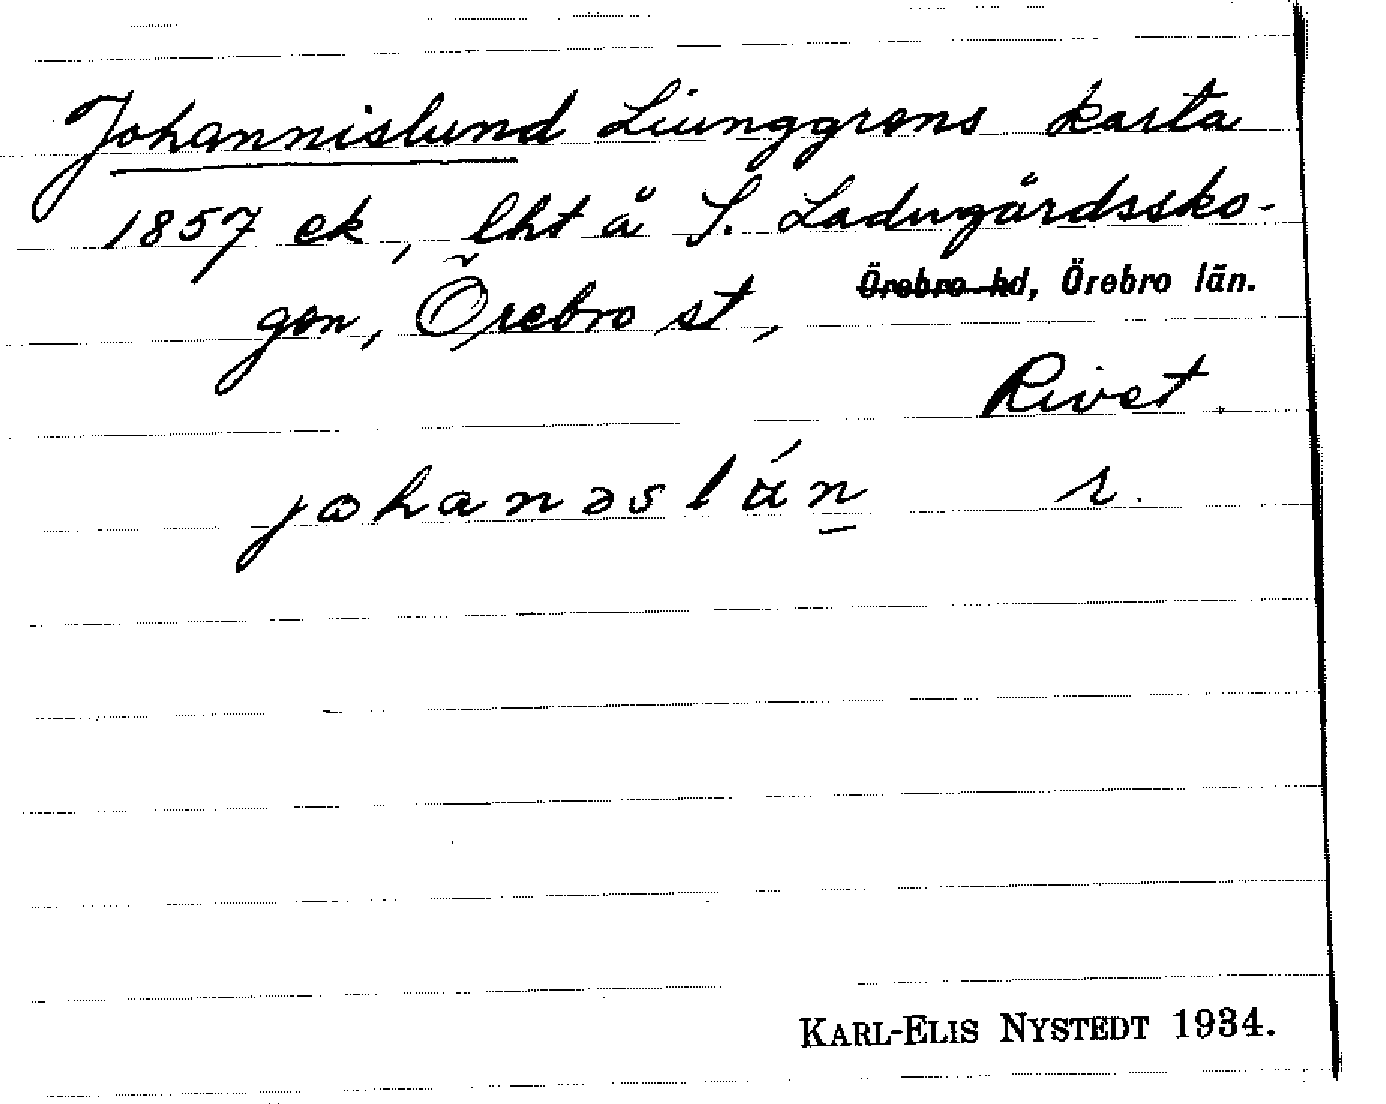 Johannislund Liunggrens karta
1857 ek, lht å S. Ladugårdssko-
gen, Örebro st, Örebro hd, Örebro län.
Rivet.
johanəslún r.
KARL-ELIS NYSTEDT 1934.